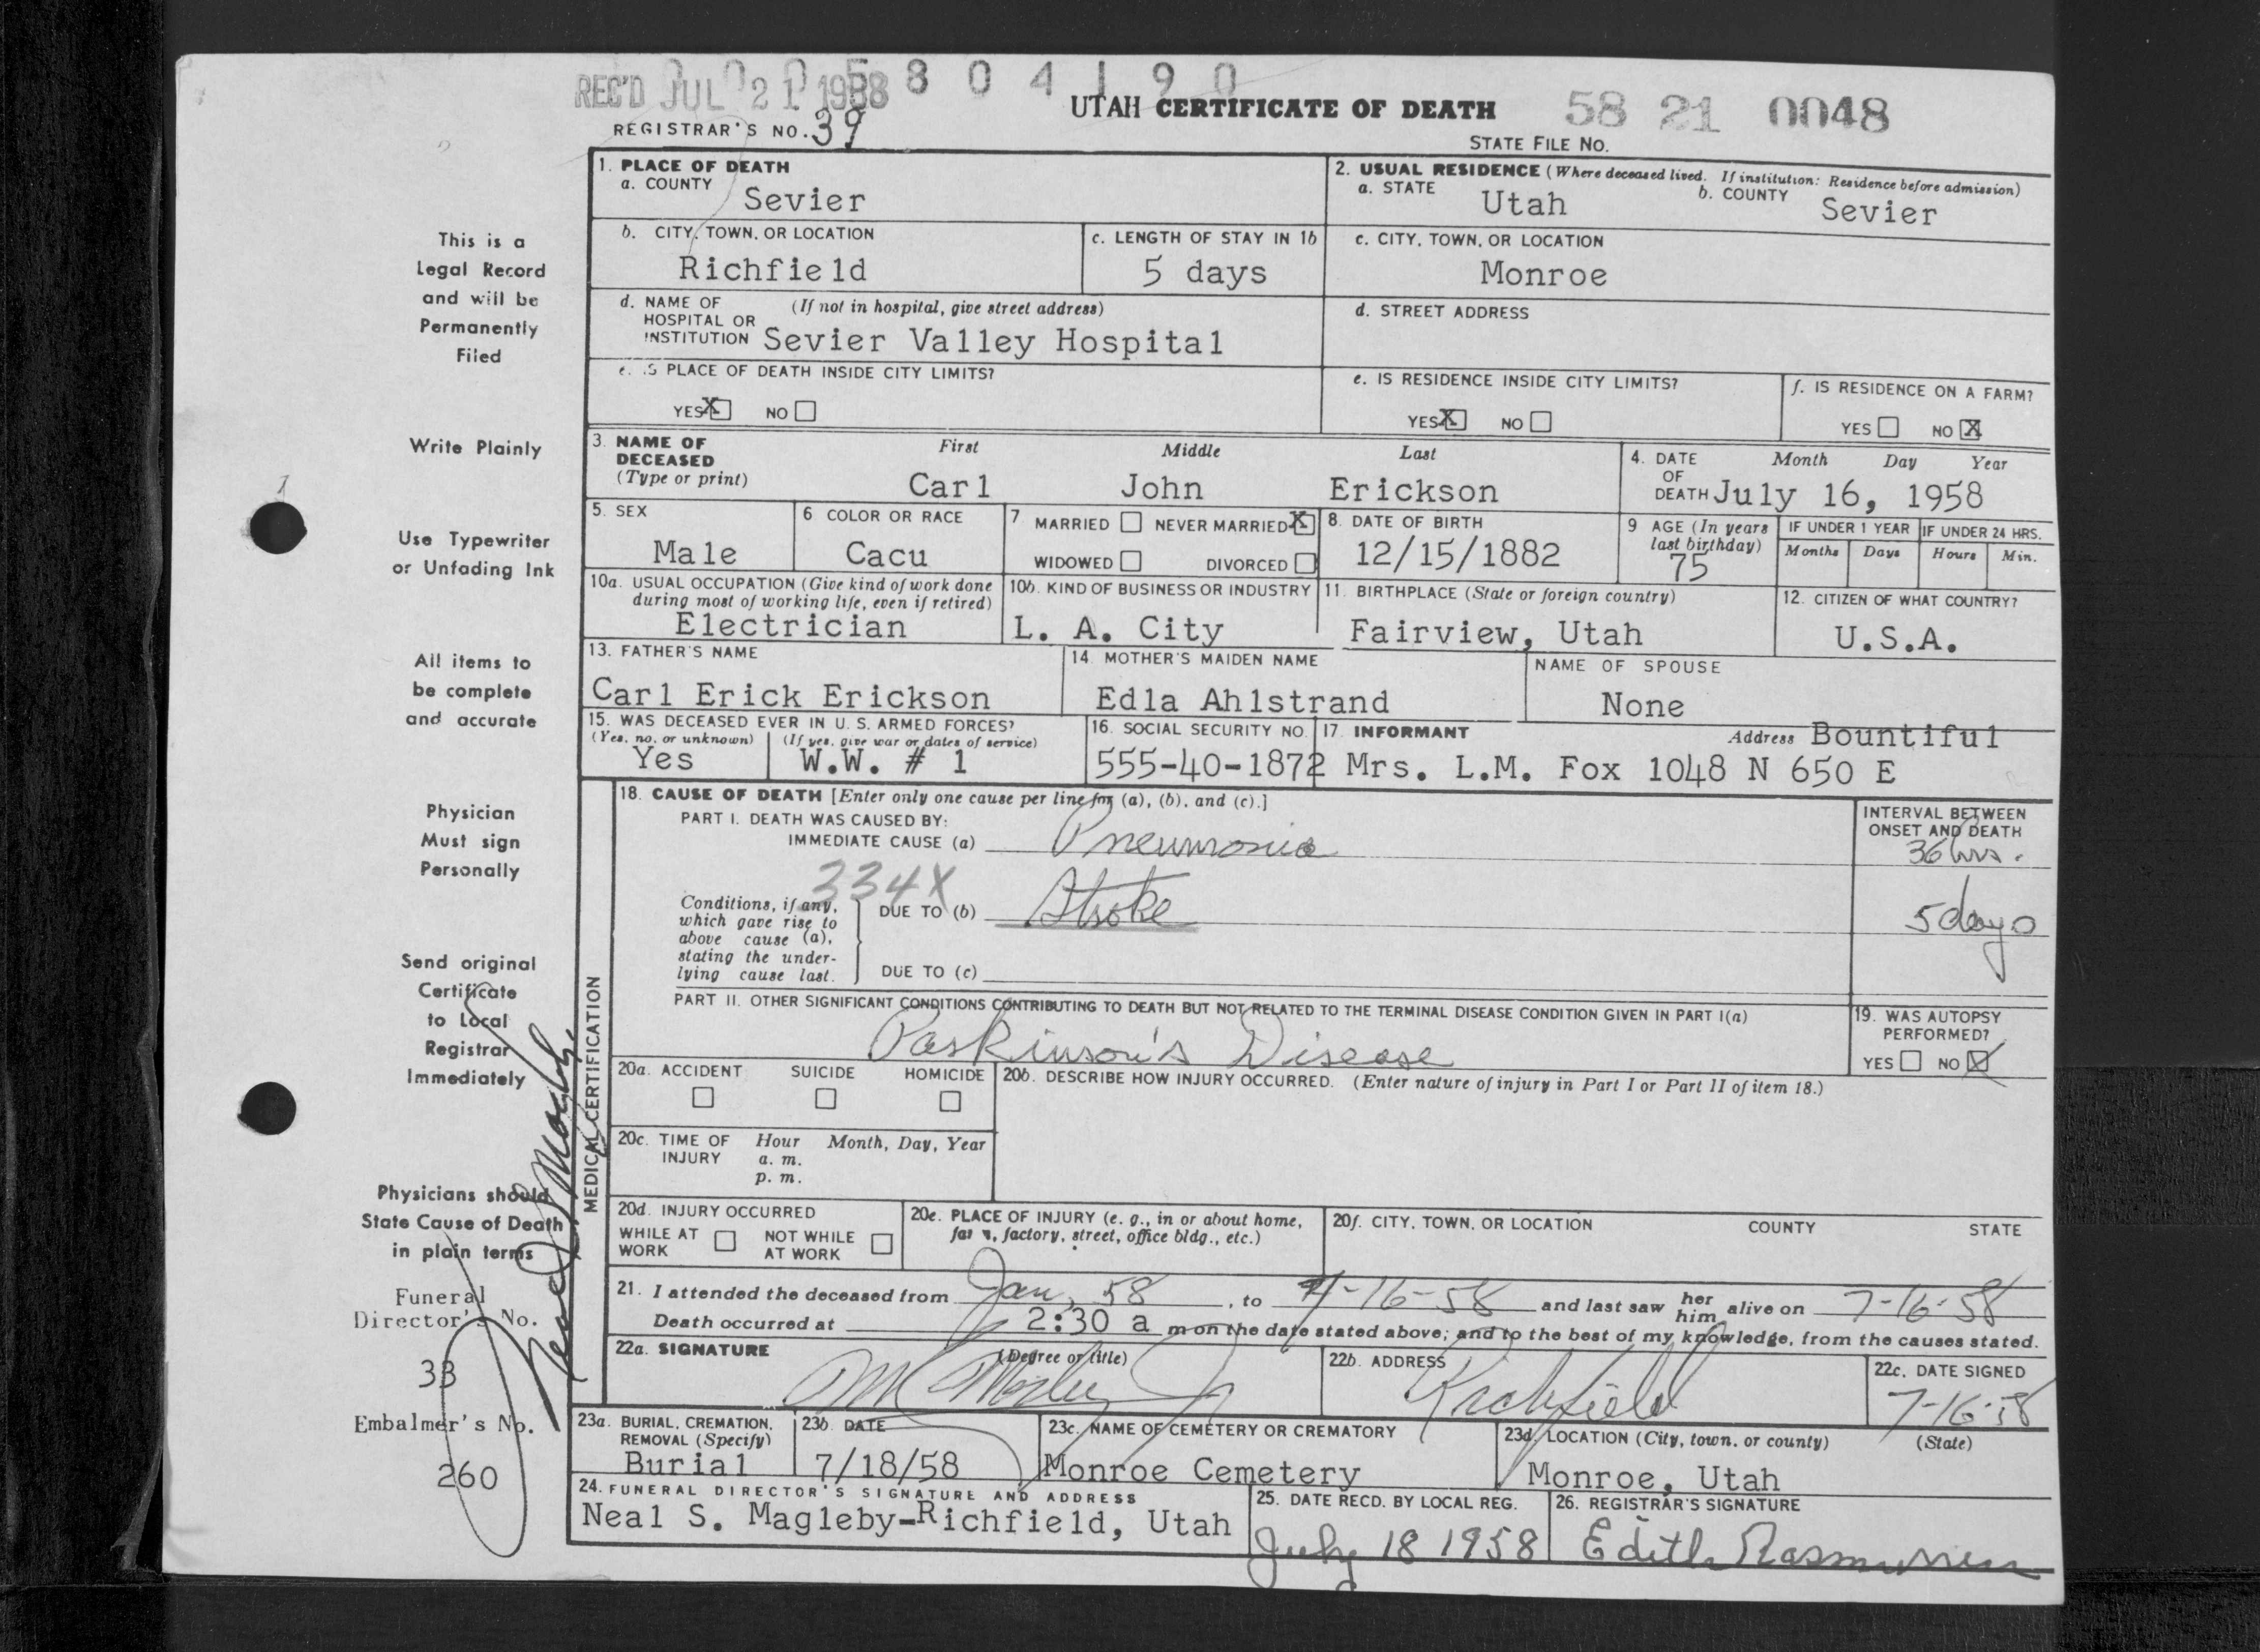 0 0 0 5 8 0 4 1 9 0
REC'D JUL 21 1958
UTAH CERTIFICATE OF DEATH 58 21 0048
REGISTRAR'S NO. 39
STATE FILE NO.
1. PLACE OF DEATH
a. COUNTY Sevier
2. USUAL RESIDENCE (Where deceased lived. If institution: Residence before admission)
a. STATE Utah b. COUNTY Sevier
b. CITY, TOWN, OR LOCATION Richfield
c. LENGTH OF STAY IN 1b 5 days
c. CITY, TOWN, OR LOCATION Monroe
d. NAME OF HOSPITAL OR INSTITUTION (If not in hospital, give street address)
Sevier Valley Hospital
d. STREET ADDRESS
e. IS PLACE OF DEATH INSIDE CITY LIMITS?
YES X NO
e. IS RESIDENCE INSIDE CITY LIMITS?
YES X NO
f. IS RESIDENCE ON A FARM?
YES NO X
3. NAME OF DECEASED (Type or print)
First Middle Last
Carl John Erickson
4. DATE OF DEATH Month Day Year
July 16, 1958
5. SEX Male
6 COLOR OR RACE Cacu
7 MARRIED NEVER MARRIED X
WIDOWED DIVORCED
8. DATE OF BIRTH 12/15/1882
9 AGE (In years last birthday) 75
IF UNDER 1 YEAR Months Days
IF UNDER 24 HRS. Hours Min.
10a. USUAL OCCUPATION (Give kind of work done during most of working life, even if retired)
Electrician
10b. KIND OF BUSINESS OR INDUSTRY
L. A. City
11. BIRTHPLACE (State or foreign country)
Fairview, Utah
12. CITIZEN OF WHAT COUNTRY?
U.S.A.
13. FATHER'S NAME
Carl Erick Erickson
14. MOTHER'S MAIDEN NAME
Edla Ahlstrand
NAME OF SPOUSE
None
15. WAS DECEASED EVER IN U. S. ARMED FORCES?
(Yes, no, or unknown) (If yes, give war or dates of service)
Yes W.W. # 1
16. SOCIAL SECURITY NO.
555-40-1872
17. INFORMANT Address Bountiful
Mrs. L.M. Fox 1048 N 650 E
MEDICAL CERTIFICATION
18. CAUSE OF DEATH [Enter only one cause per line for (a), (b), and (c).]
INTERVAL BETWEEN ONSET AND DEATH
PART I. DEATH WAS CAUSED BY:
IMMEDIATE CAUSE (a) Pneumonia 36 hrs.
334X
Conditions, if any, which gave rise to above cause (a), stating the underlying cause last.
DUE TO (b) Stroke 5 days
DUE TO (c)
PART II. OTHER SIGNIFICANT CONDITIONS CONTRIBUTING TO DEATH BUT NOT RELATED TO THE TERMINAL DISEASE CONDITION GIVEN IN PART I(a)
Parkinson's Disease
19. WAS AUTOPSY PERFORMED?
YES NO X
20a. ACCIDENT SUICIDE HOMICIDE
20b. DESCRIBE HOW INJURY OCCURRED. (Enter nature of injury in Part I or Part II of item 18.)
20c. TIME OF INJURY Hour Month, Day, Year
a. m.
p. m.
20d. INJURY OCCURRED
WHILE AT WORK NOT WHILE AT WORK
20e. PLACE OF INJURY (e. g., in or about home, farm, factory, street, office bldg., etc.)
20f. CITY, TOWN, OR LOCATION COUNTY STATE
21. I attended the deceased from Jan, 58, to 7-16-58 and last saw her him alive on 7-16-58
Death occurred at 2:30 a m on the date stated above; and to the best of my knowledge, from the causes stated.
22a. SIGNATURE (Degree or title)
22b. ADDRESS Richfield
22c. DATE SIGNED 7-16-58
23a. BURIAL, CREMATION, REMOVAL (Specify)
Burial
23b. DATE
7/18/58
23c. NAME OF CEMETERY OR CREMATORY
Monroe Cemetery
23d. LOCATION (City, town, or county) (State)
Monroe, Utah
24. FUNERAL DIRECTOR'S SIGNATURE AND ADDRESS
Neal S. Magleby-Richfield, Utah
25. DATE RECD. BY LOCAL REG.
July 18 1958
26. REGISTRAR'S SIGNATURE
Edith Rasmussen
This is a
Legal Record
and will be
Permanently
Filed
Write Plainly
Use Typewriter
or Unfading Ink
All items to
be complete
and accurate
Physician
Must sign
Personally
Send original
Certificate
to Local
Registrar
Immediately
Physicians should
State Cause of Death
in plain terms
Funeral
Director's No.
33
Embalmer's No.
260